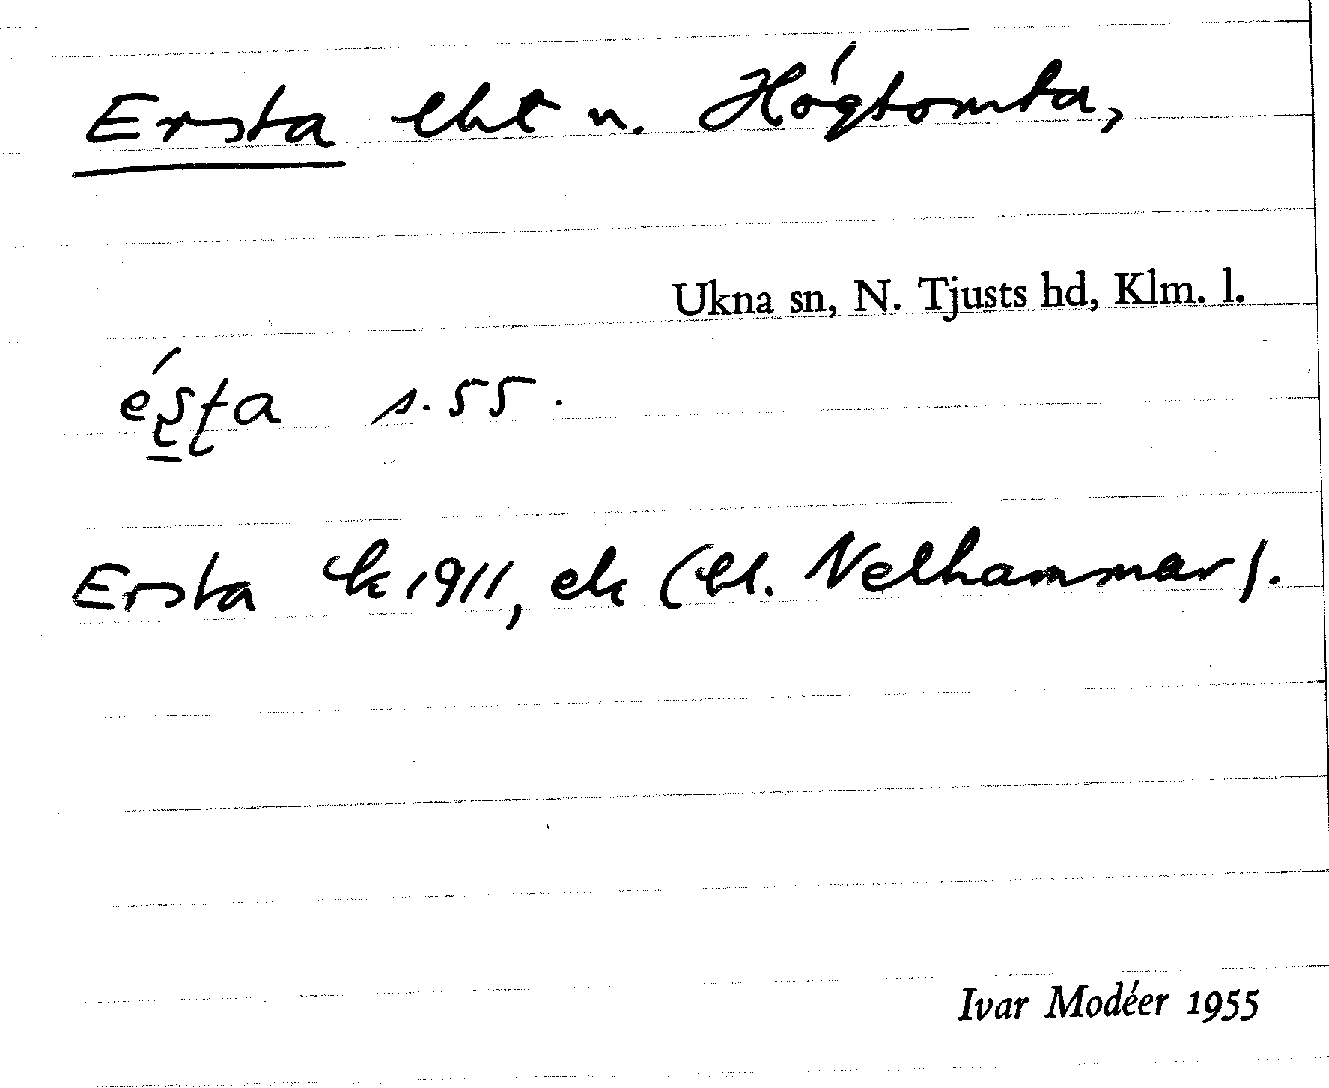 Ersta lht u. Högtomta,
Ukna sn, N. Tjusts hd, Klm. l.
s. 55.
Ersta 1911, ek (bl. Nelhammar).
Ivar Modéer 1955